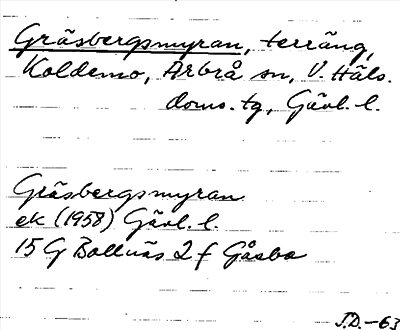 Gräsbergsmyran, terräng,
Koldemo, Arbrå sn, V. Häls.
doms. tg, Gävl. l.
Gräsbergsmyran
ek (1958) Gävl. l.
15 G Bollnäs 2 f Gåsbo
J.D. -63